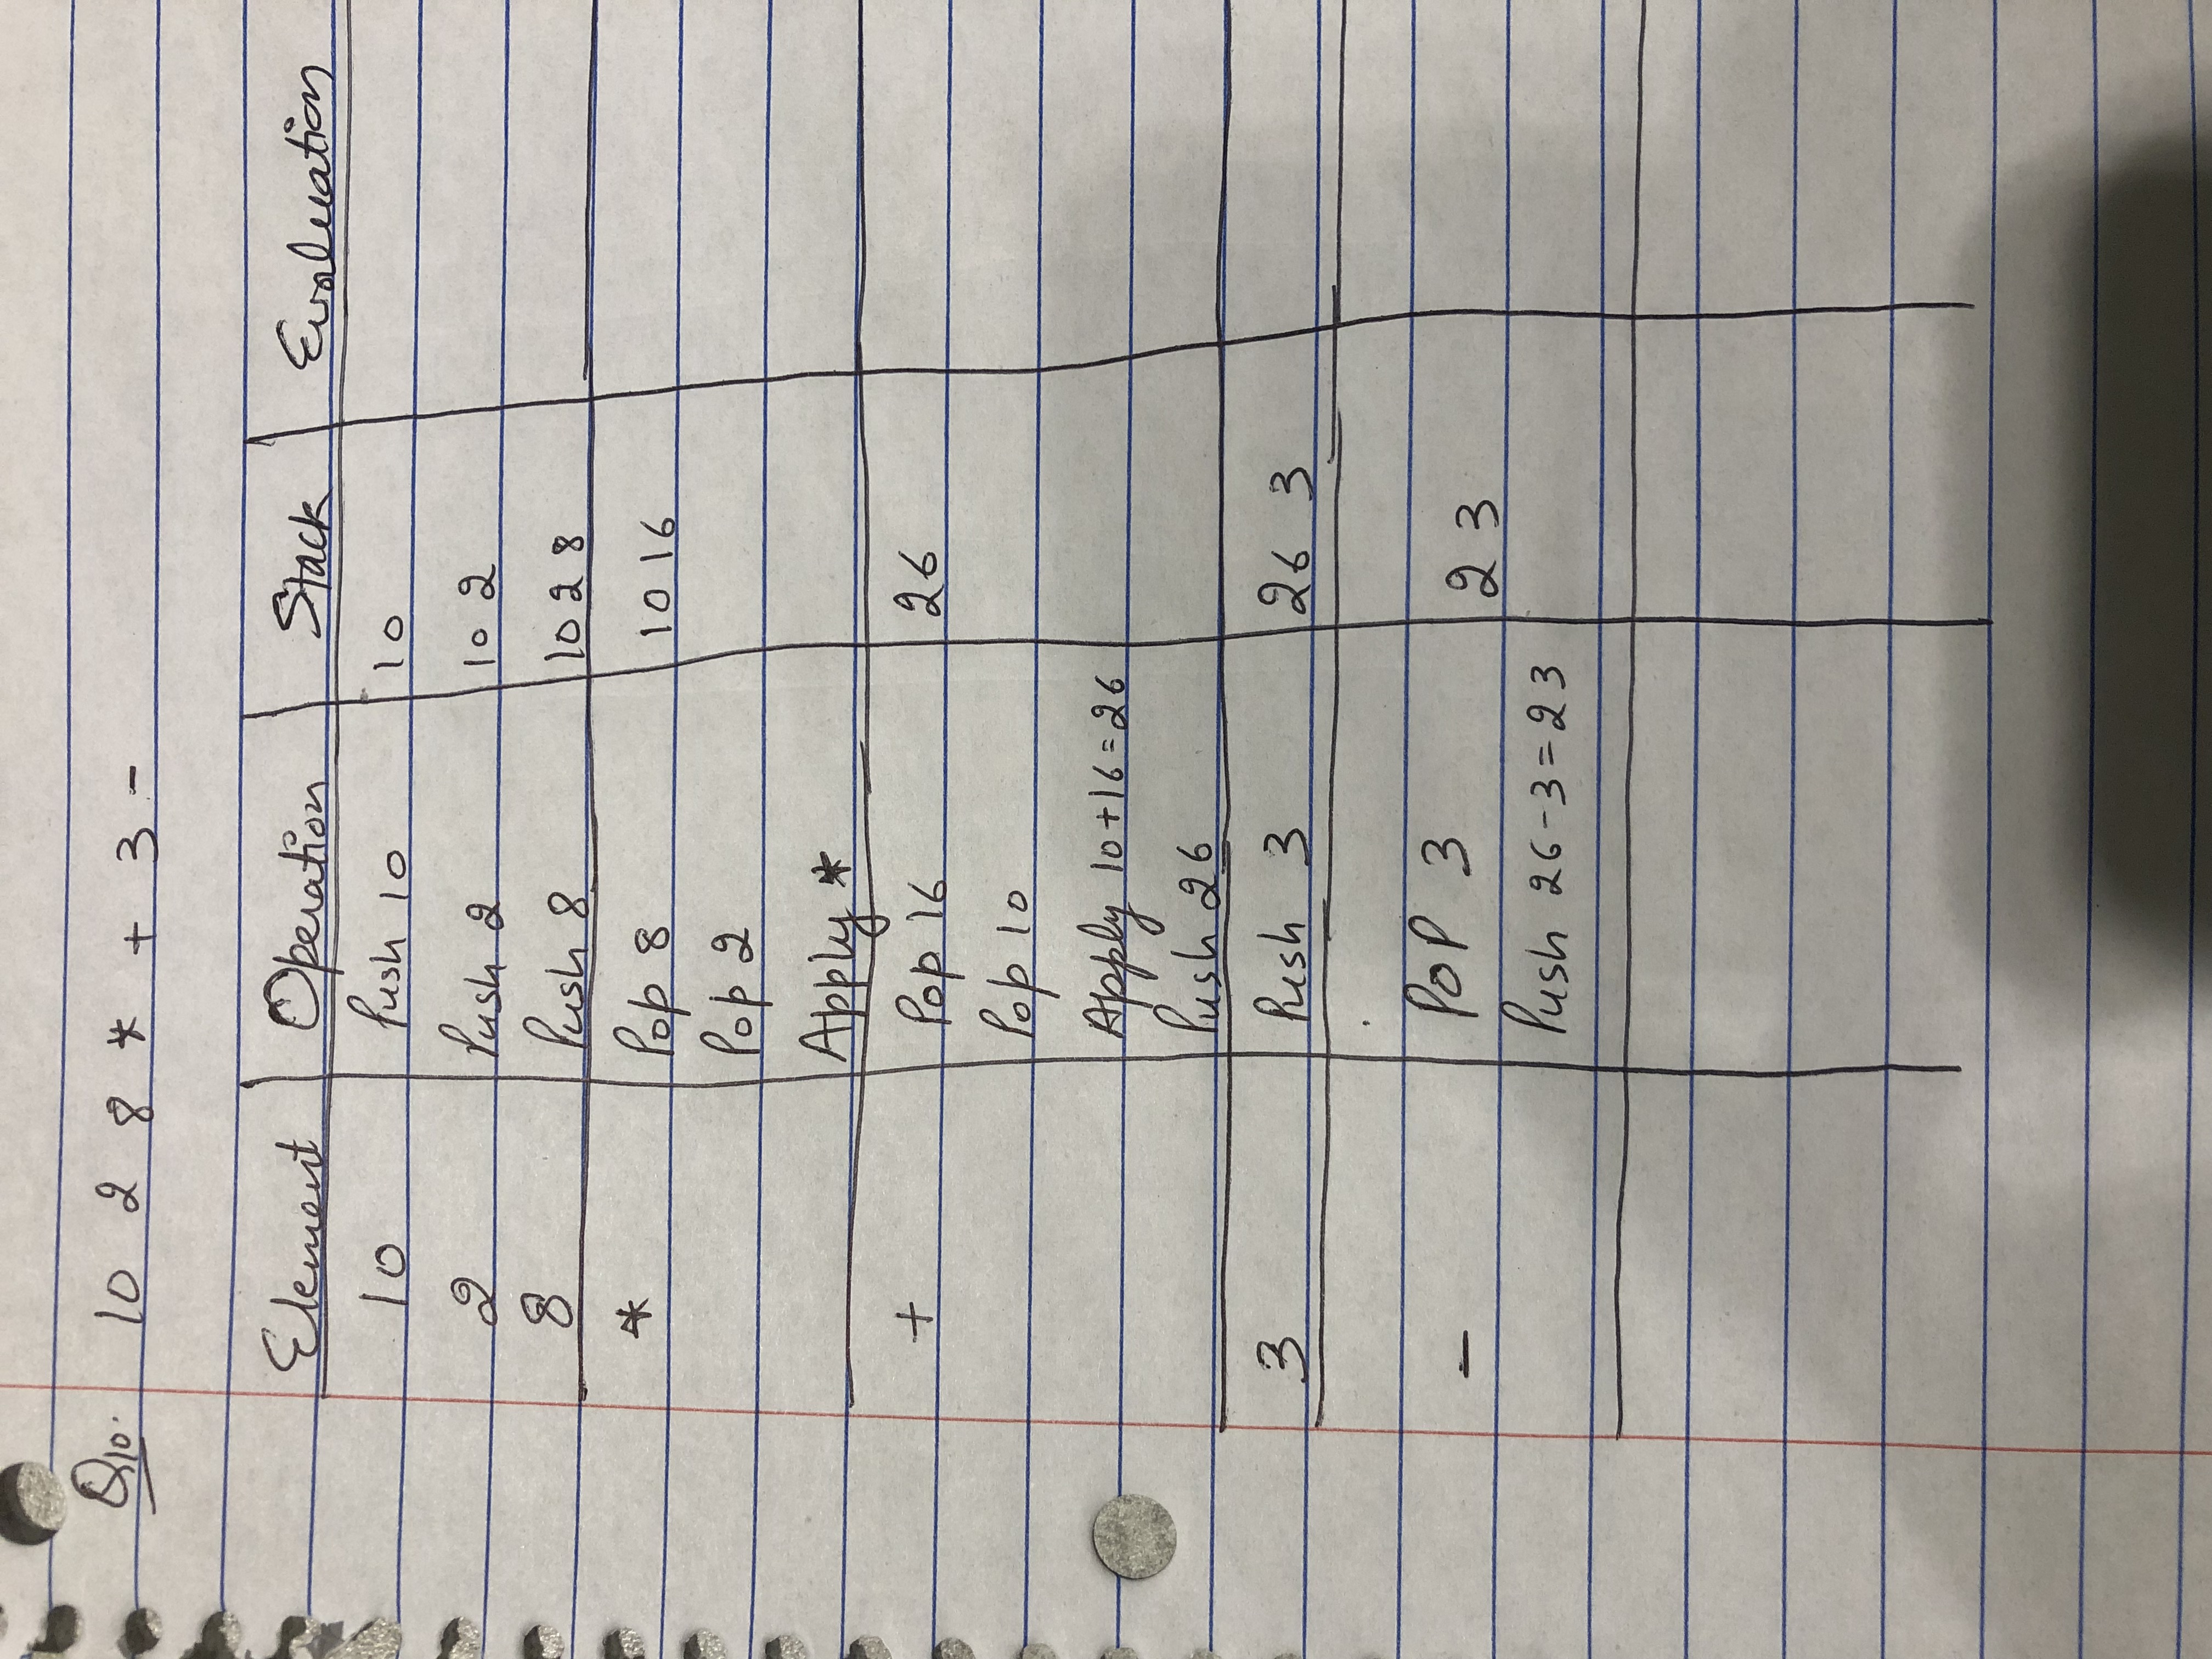 Q10. 10 2 8 * + 3 -
Element Operation Stack Evaluation
10 Push 10 10
2 Push 2 10 2
8 Push 8 10 2 8
* Pop 8 10 16
Pop 2
Apply *
+ Pop 16 26
Pop 10
Apply 10+16=26
Push 26
3 Push 3 26 3
- POP 3 23
Push 26-3=23